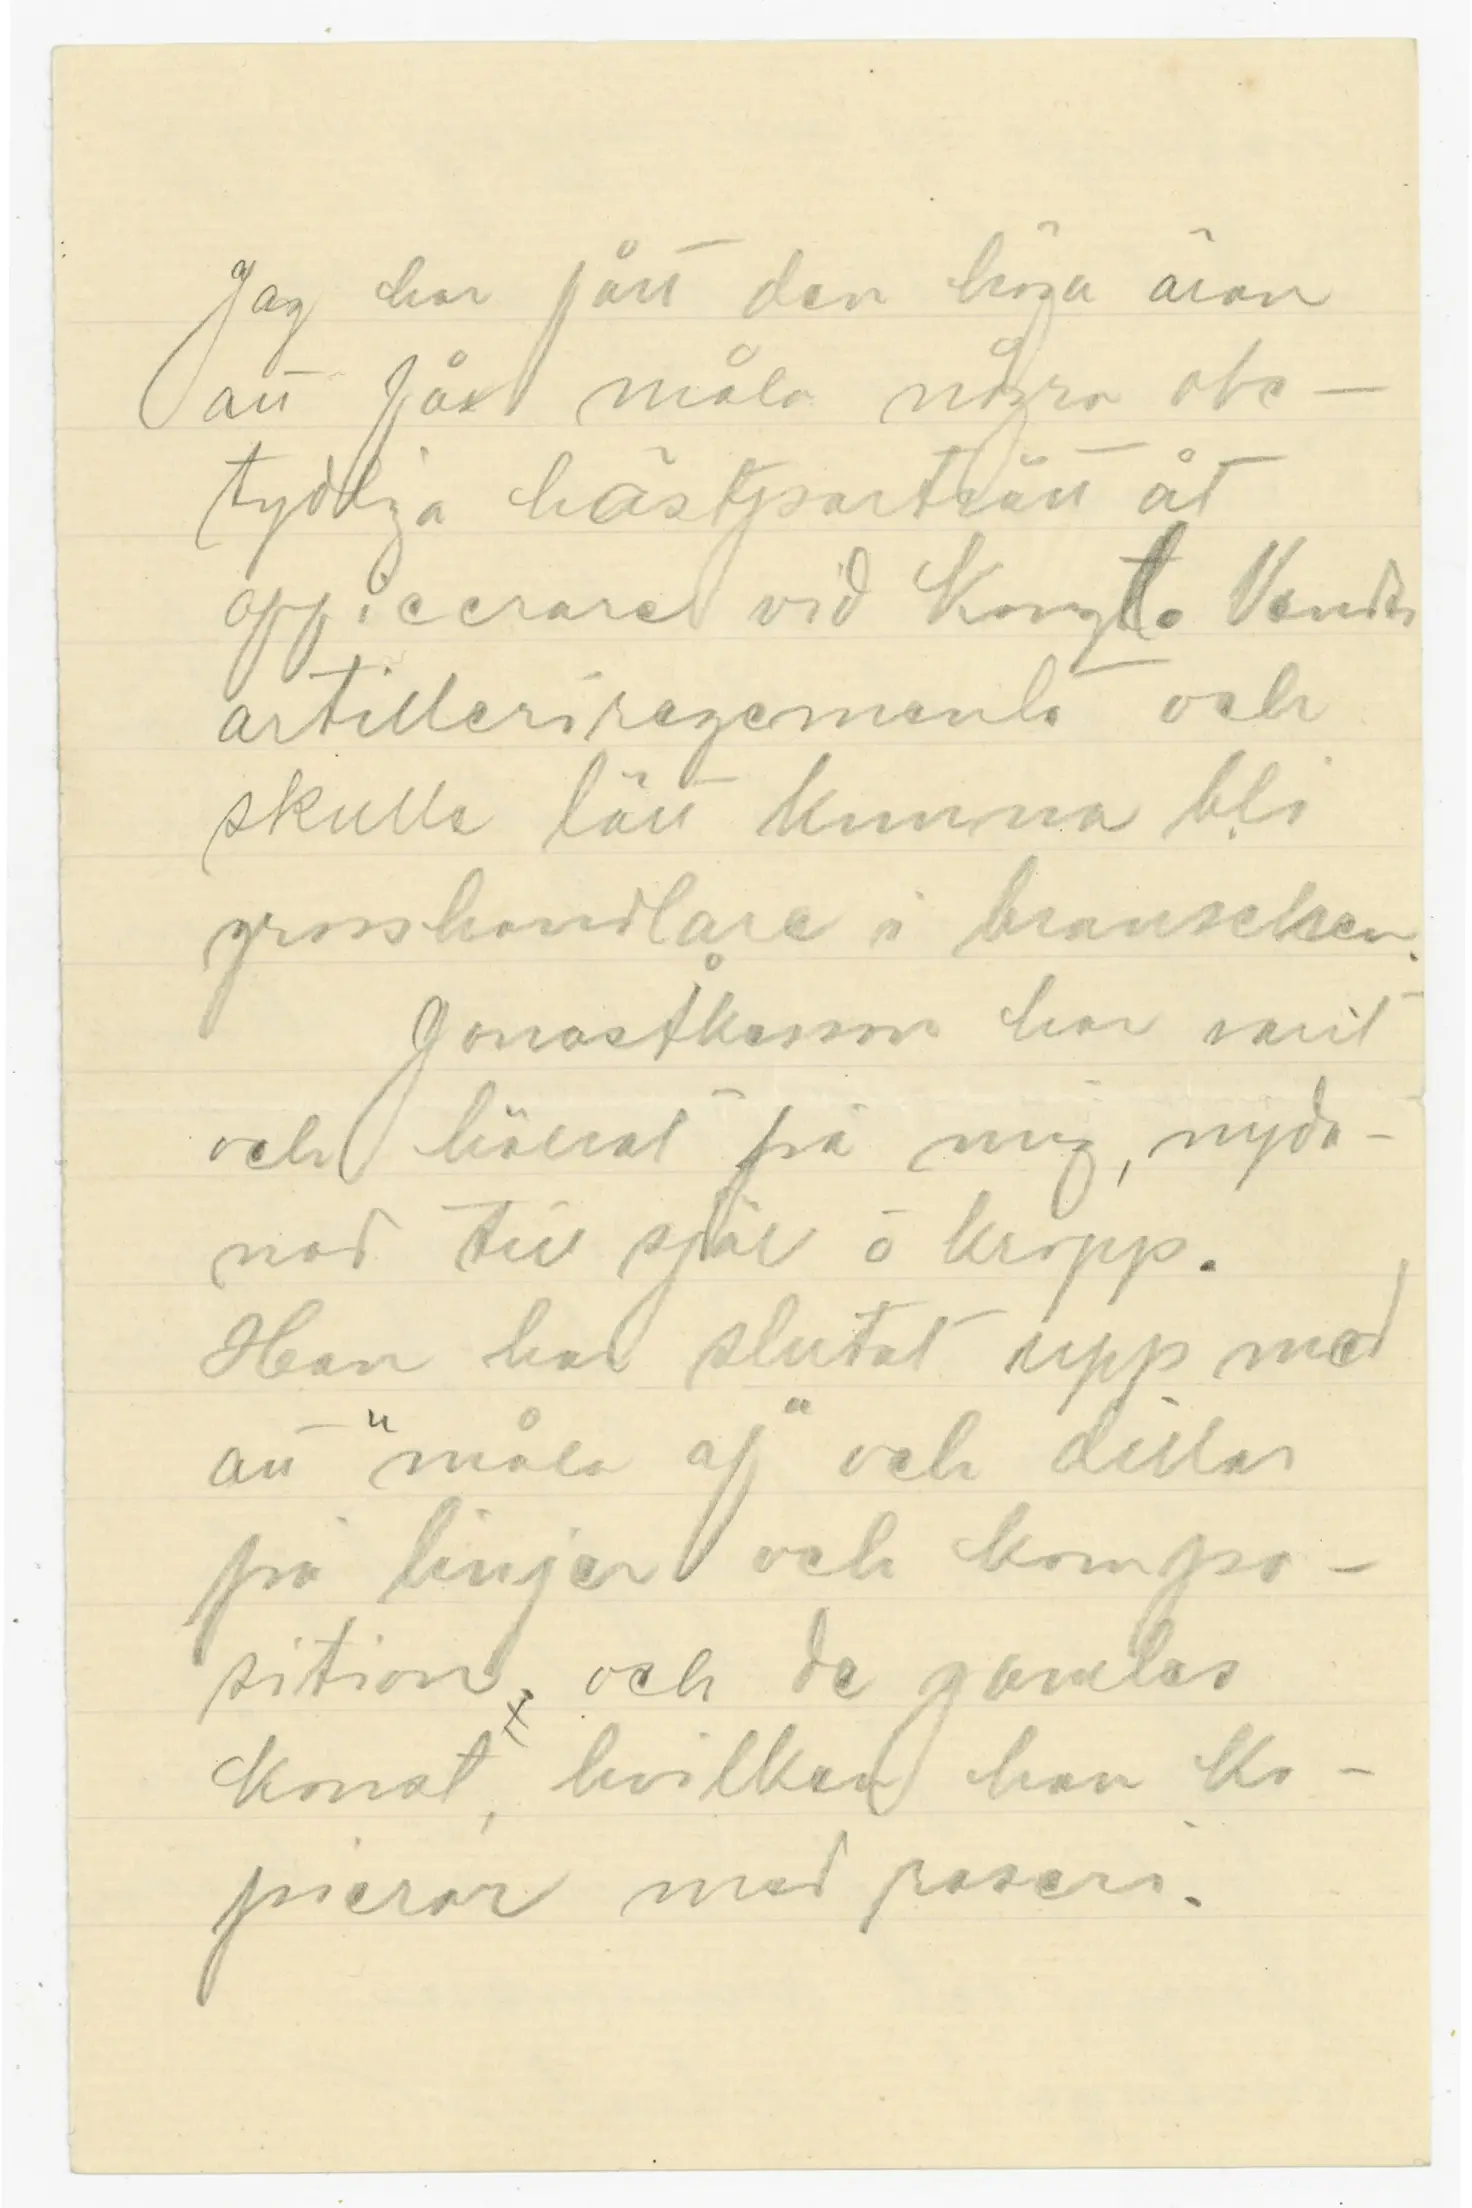 Jag har fått den höga äran
att få måla några obe-
tydliga hästporträtt åt
officerare vid Kongl. Vendes
artilleriregemente och
skulle lätt kunna bli
grosshandlare i branschen.
Jonas Åkesson har varit
och hälsat på mig, nyda-
nad till själ o kropp.
Han har slutat upp med
att "måla af" och dillar
på linjer och kompo-
sition, och de gamles
konst, hvilken han ko-
pierar med raseri.